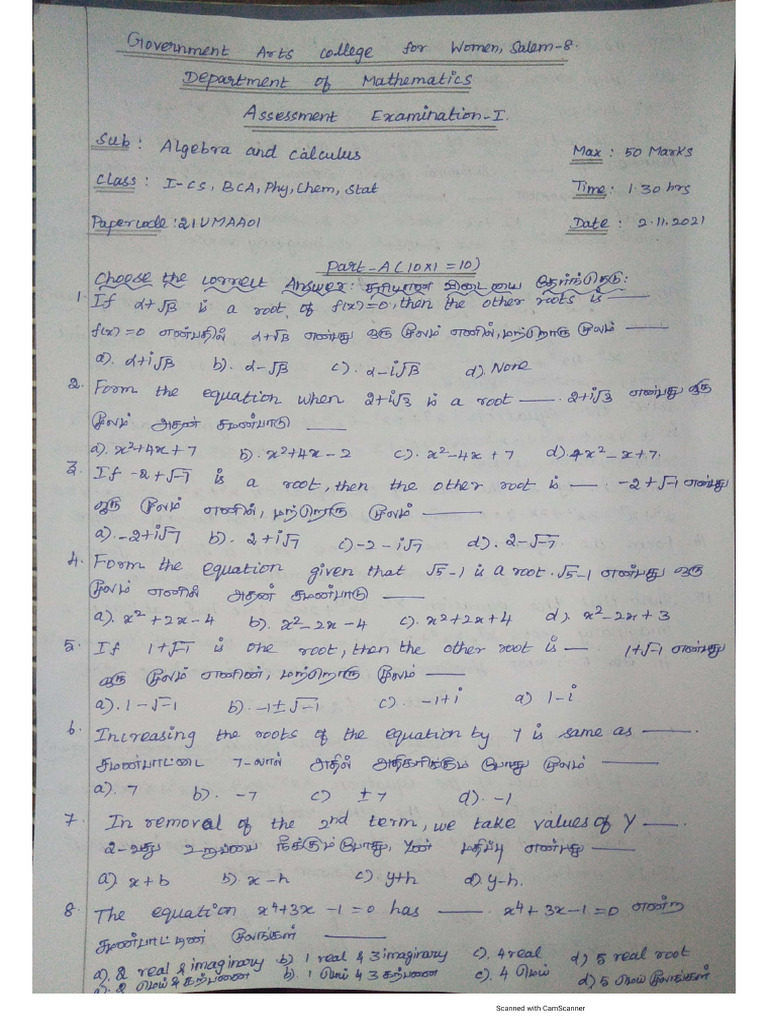 Government Arts college for Women, Salem-8.
Department of Mathematics
Assessment Examination-I.
Sub : Algebra and calculus
Max : 50 Marks
Class : I-CS, BCA, Phy, Chem, Stat
Time : 1.30 hrs
Papercode : 21UMAA01
Date : 2.11.2021
Part-A (10x1=10)
Choose the correct Answer : சரியான விடையை தேர்ந்தெடு:
1. If α+√β is a root of f(x)=0, then the other roots is ——
f(x)=0 என்பதில் α+√β என்பது ஒரு மூலம் எனில், மற்றொரு மூலம் ——
a). α+i√β b). α-√β c). α-i√β d). None
2. Form the equation when 2+i√3 is a root —— . 2+i√3 என்பது ஒரு
மூலம் அதன் சமன்பாடு ——
a). x²+4x+7 b). x²+4x-2 c). x²-4x+7 d). 4x²-x+7.
3. If -2+√-7 is a root, then the other root is —— . -2+√-7 என்பது
ஒரு மூலம் எனில், மற்றொரு மூலம் ——
a). -2+i√7 b). 2+i√7 c) -2-i√7 d). 2-√-7.
4. Form the equation given that √5-1 is a root. √5-1 என்பது ஒரு
மூலம் எனில் அதன் சமன்பாடு ——
a). x²+2x-4 b). x²-2x-4 c). x²+2x+4 d). x²-2x+3
5. If 1+√-1 is one root, then the other root is —— 1+√-1 என்பது
ஒரு மூலம் எனின், மற்றொரு மூலம் ——
a). 1-√-1 b). -1±√-1 c). -1+i a) 1-i
6. Increasing the roots of the equation by 7 is same as ——.
சமன்பாட்டை 7-லால் அதில் அதிகரிக்கும் போது மூலம் ——
a). 7 b). -7 c) ±7 d). -1
7. In removal of the 2nd term, we take values of Y ——.
2-வது உறுப்பை நீக்கும்போது, Yன் மதிப்பு என்பது ——
a) x+h b) x-h c). y+h d). y-h.
8. The equation x⁴+3x-1=0 has ——. x⁴+3x-1=0 என்ற
சமன்பாட்டின் மூலங்கள் ——
a). 2 real & imaginary b) 1 real & 3 imaginary c). 4 real d) 5 real root
a). 2 மெய் & கற்பனை b). 1 மெய் 4 3 கற்பனை c). 4 மெய் d) 5 மெய் மூலங்கள்
Scanned with CamScanner